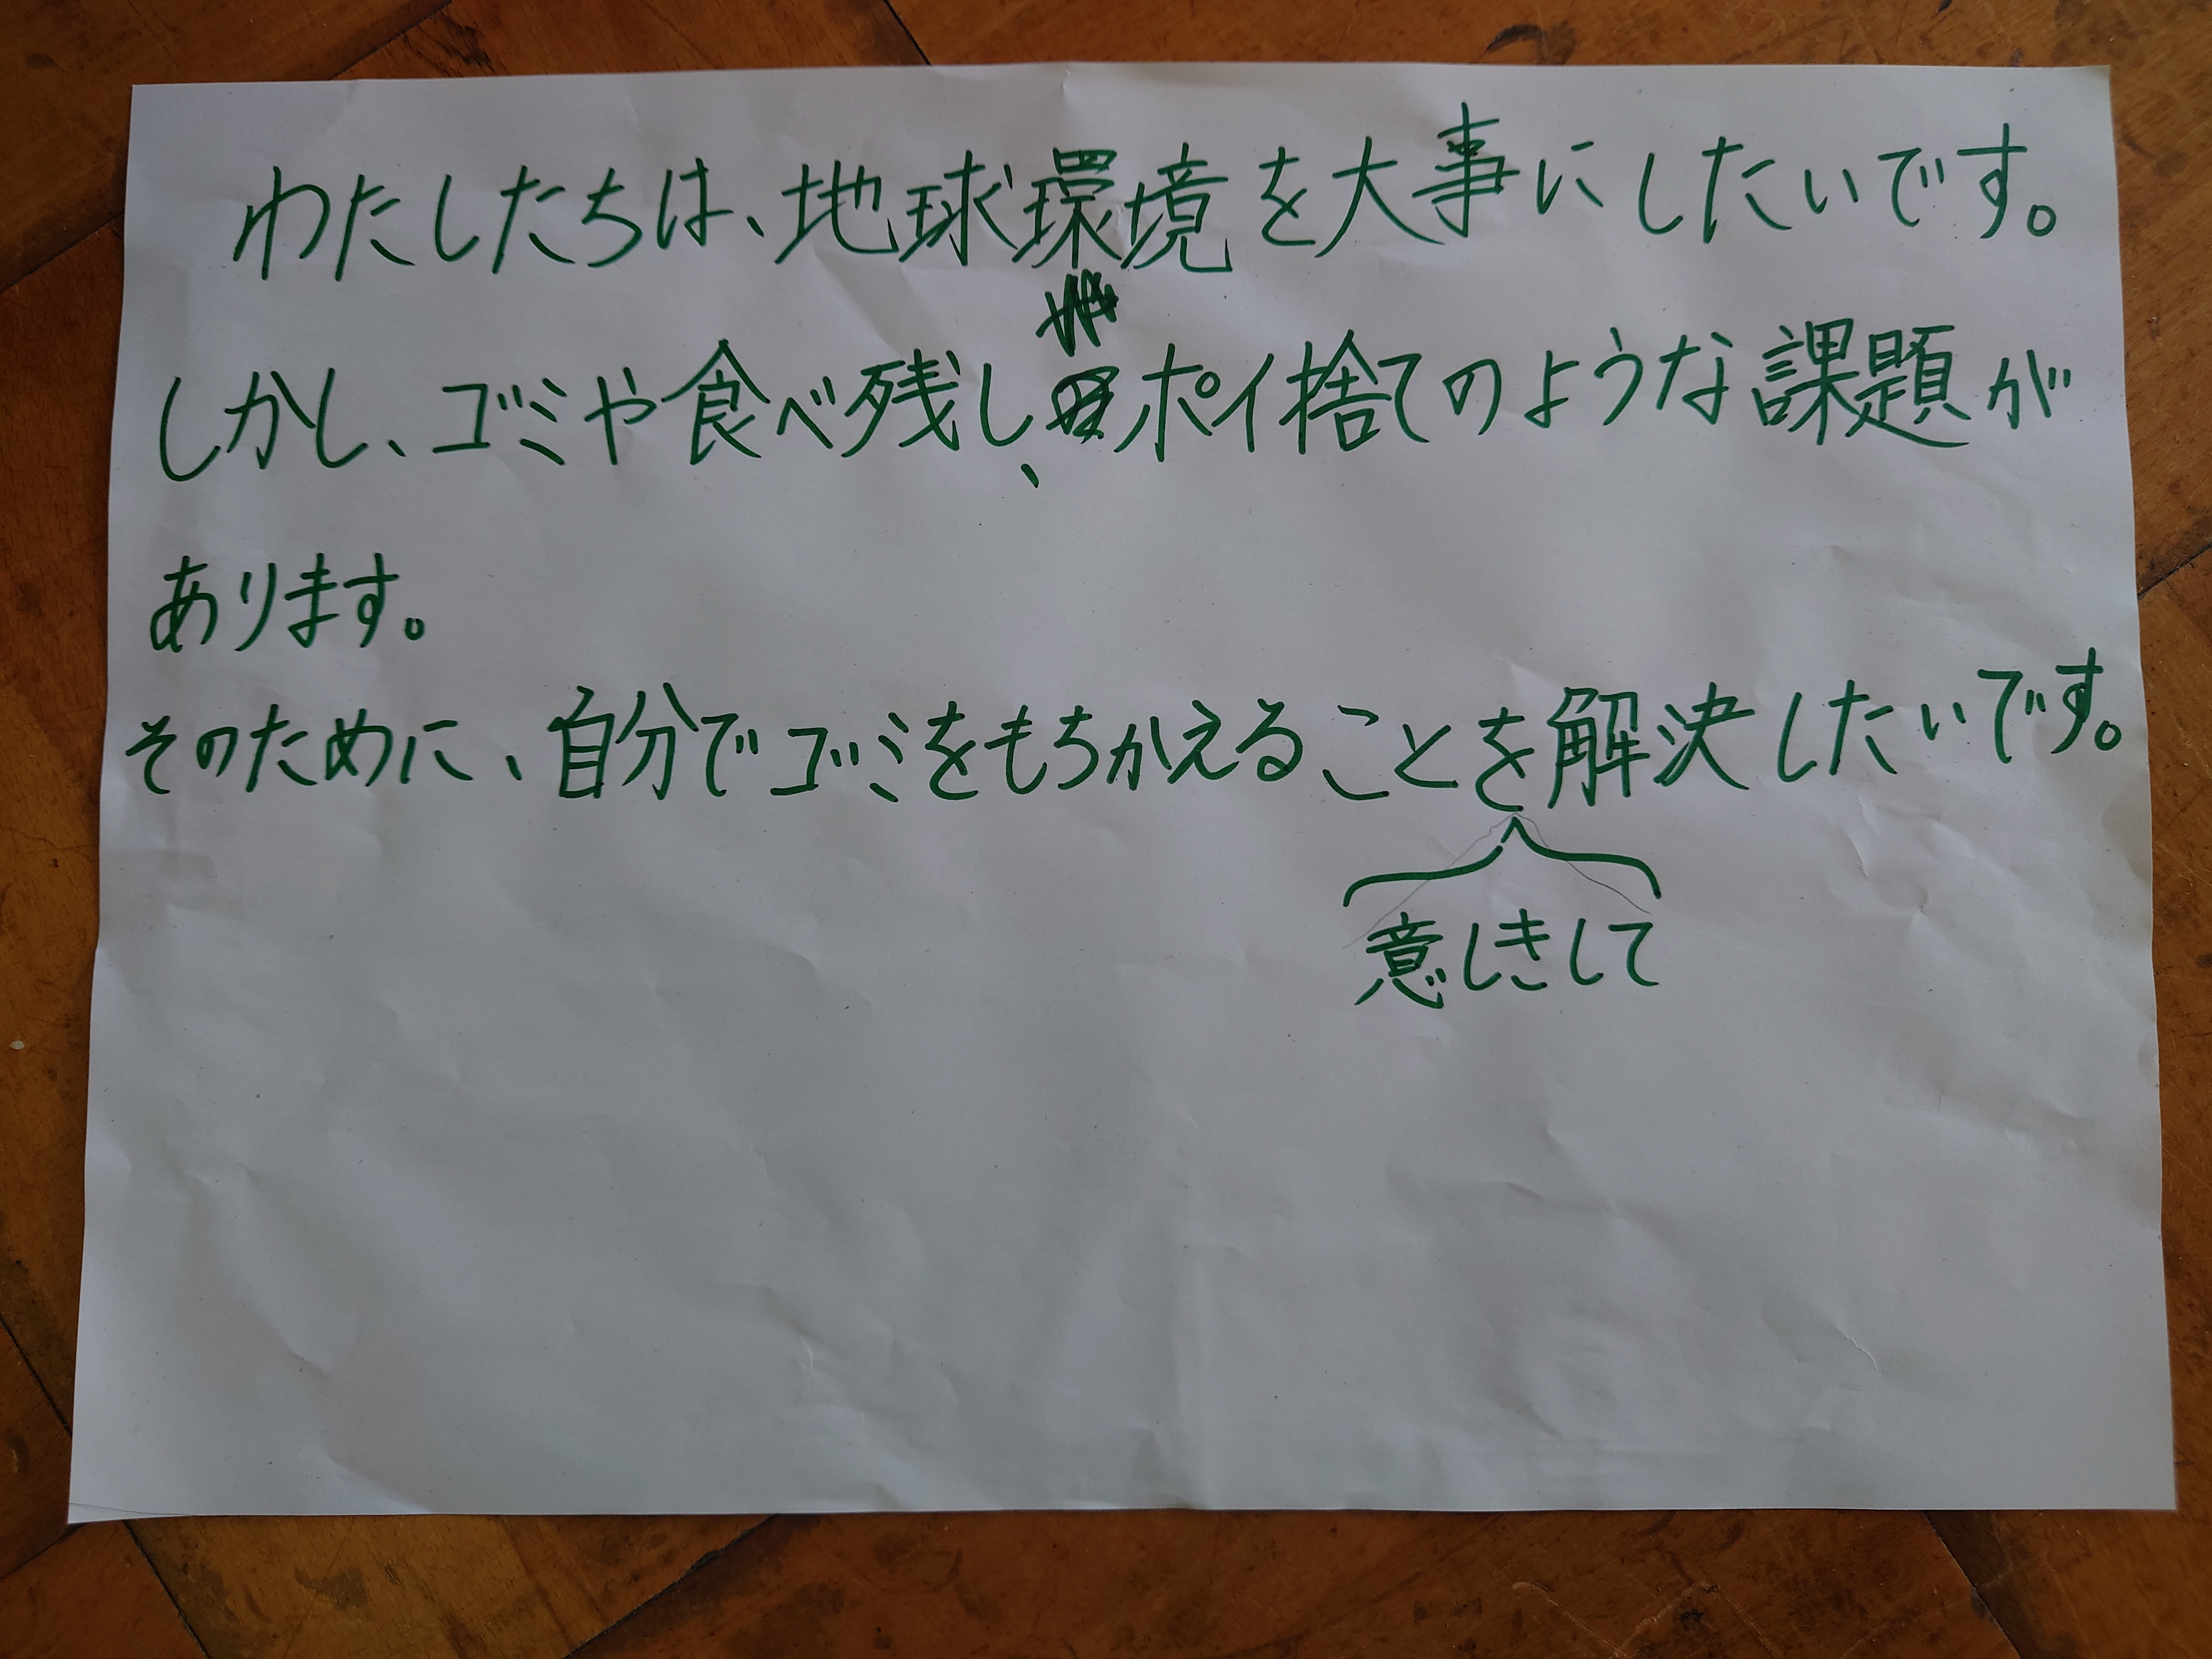 わたしたちは、地球環境を大事にしたいです。
しかし、ゴミや食べ残し、ポイ捨てのような課題が
あります。
そのために、自分でゴミをもちかえることを解決したいです。
意しきして